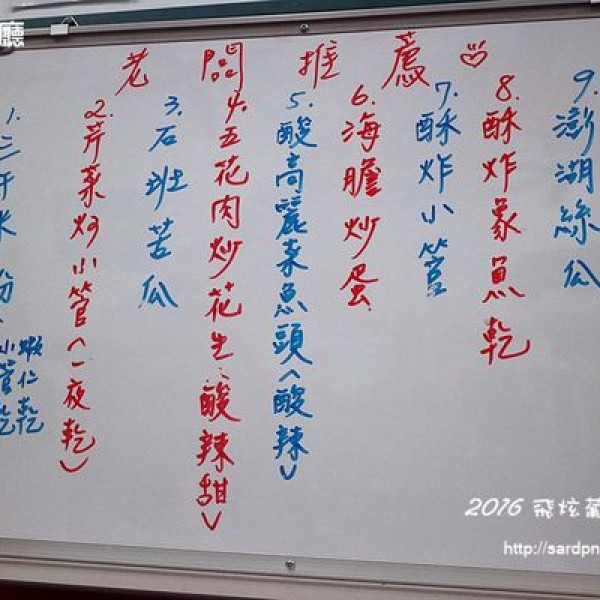 廳
老闆推薦
1.三干米粉、小管乾 蝦仁乾
2.芹菜炒小管(一夜乾)
3.石班苦瓜
4.五花肉炒花生(酸辣甜)
5.酸高麗菜魚頭(酸辣)
6.海膽炒蛋
7.酥炸小管
8.酥炸象魚乾
9.澎湖絲瓜
2016 飛炫
http://sardpn